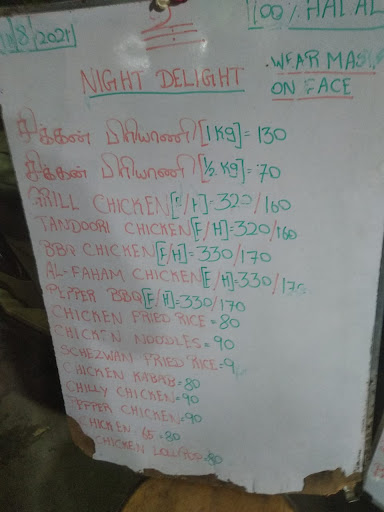 100% HALAL
/8/2021
WEAR MASK
NIGHT DELIGHT
ON FACE
சிக்கன் பிரியாணி [1 Kg]= 130
சிக்கன் பிரியாணி [½ Kg]= 70
GRILL CHICKEN[F/H]=320/160
TANDOORI CHICKEN[F/H]=320/160
BBQ CHICKEN[F/H]=330/170
AL-FAHAM CHICKEN[F/H]=330/170
PEPPER BBQ[F/H]=330/170
CHICKEN FRIED RICE = 80
CHICKEN NOODLES = 90
SCHEZWAN FRIED RICE=
CHICKEN KABAB=80
CHILLY CHICKEN=90
PEPPER CHICKEN=90
CHICKEN 65=80
CHICKEN LOLLYPOP=80